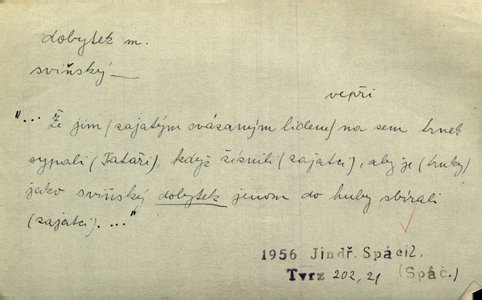 dobytek m.
svińský —
vepři
"... Že jim (zajatým svázaným lidem) na zem trnek
sypali (Tataři), když žíznili (zajatci), aby je (trnky)
jako sviňský dobytek jenom do huby sbírali
(zajatci). ..."
1956 Jindř. Spáčil.
Tvrz 202, 21 (Spáč.)